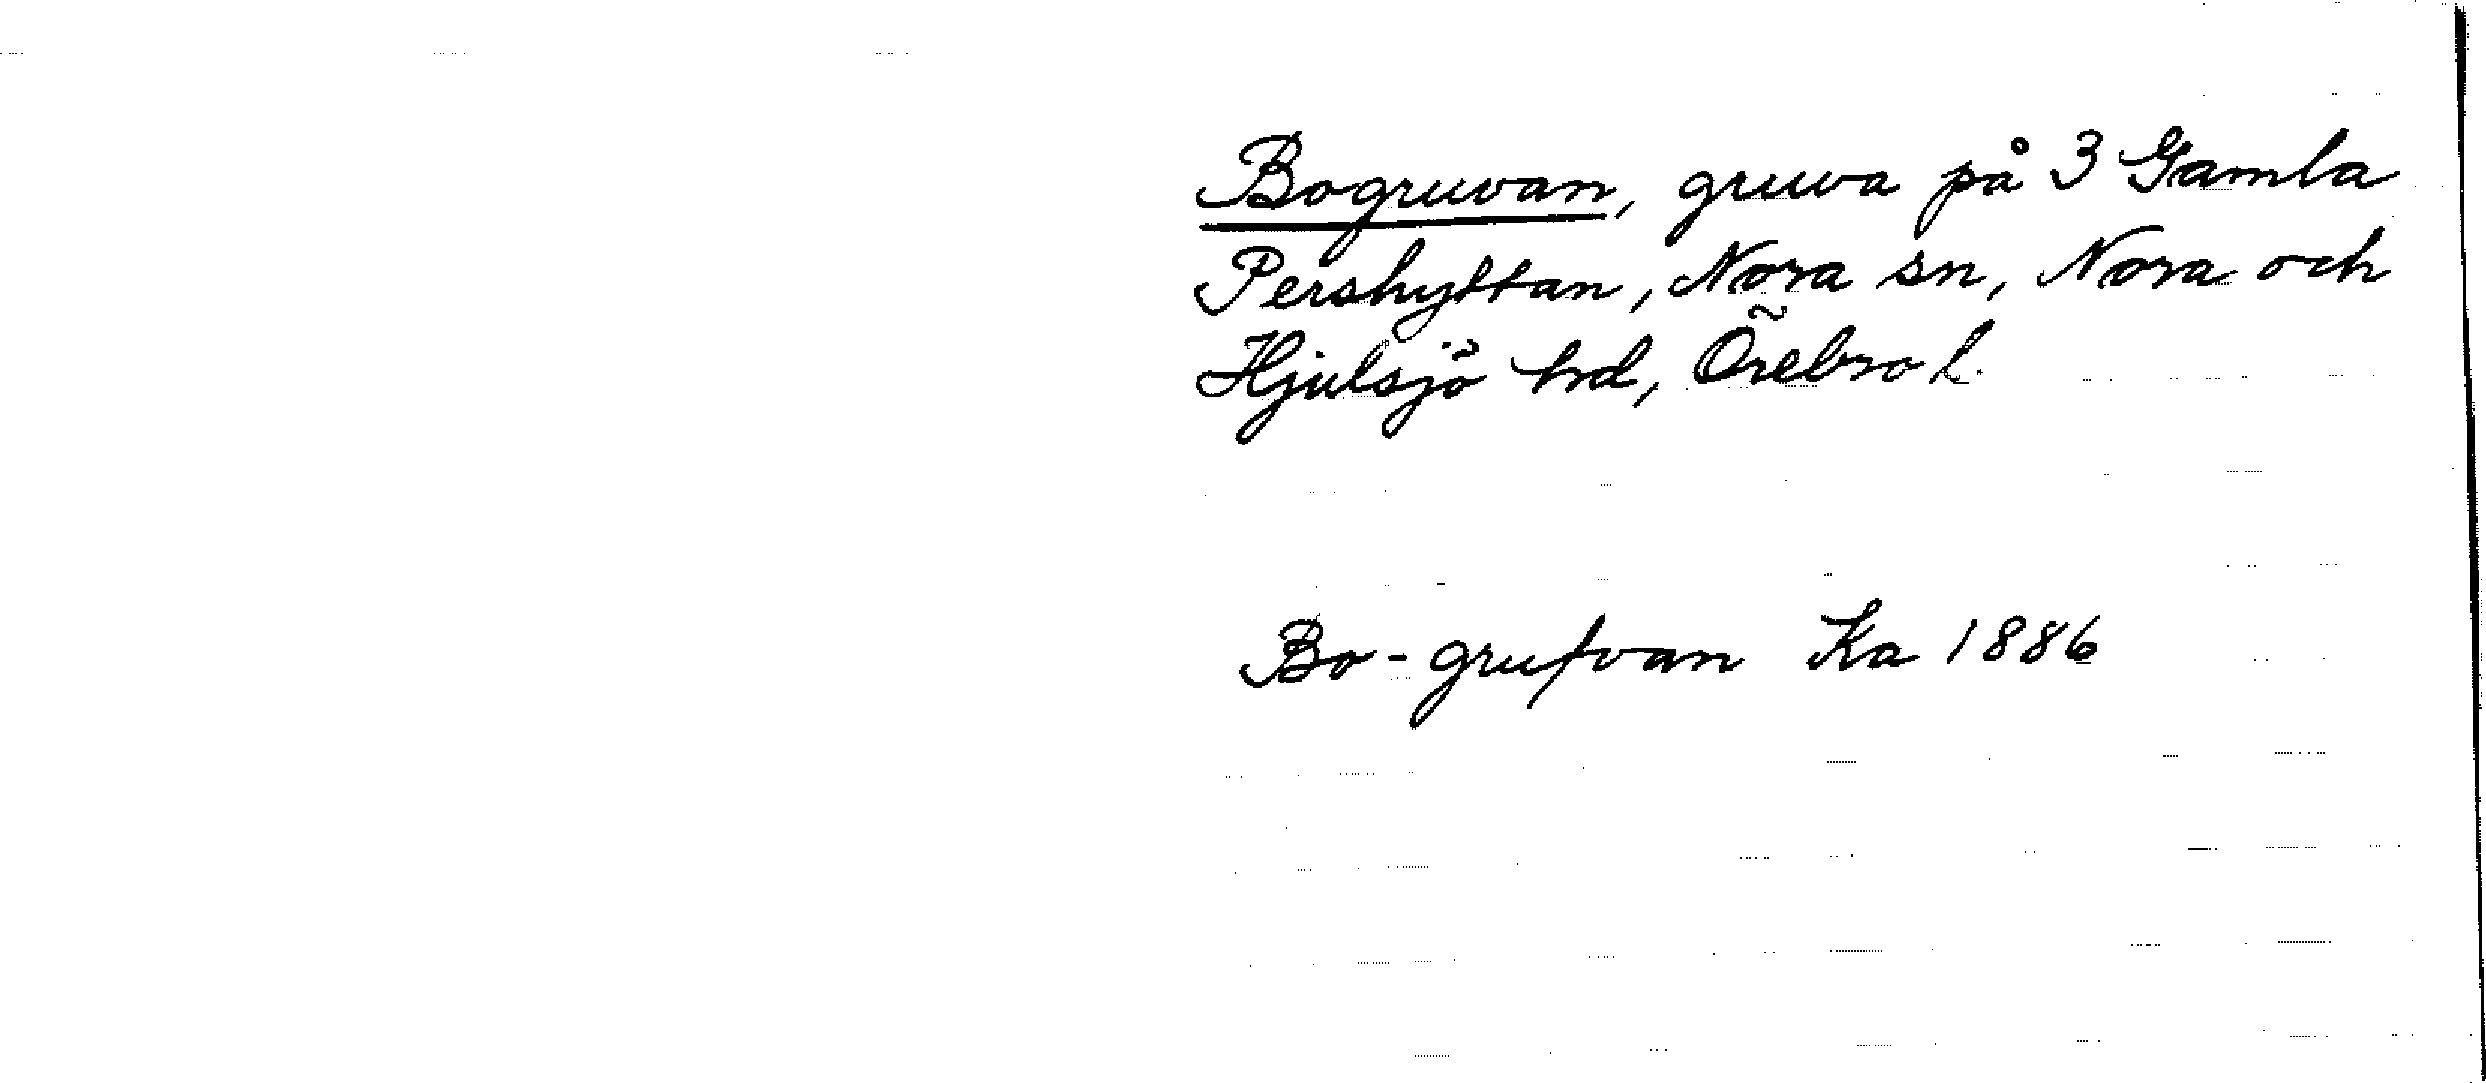 Bogruvan, gruva på 3 Gamla
Pershyttan, Nora sn, Nora och
Hjulsjö hrd, Örebro l.
Bo-grufvan Ka 1886